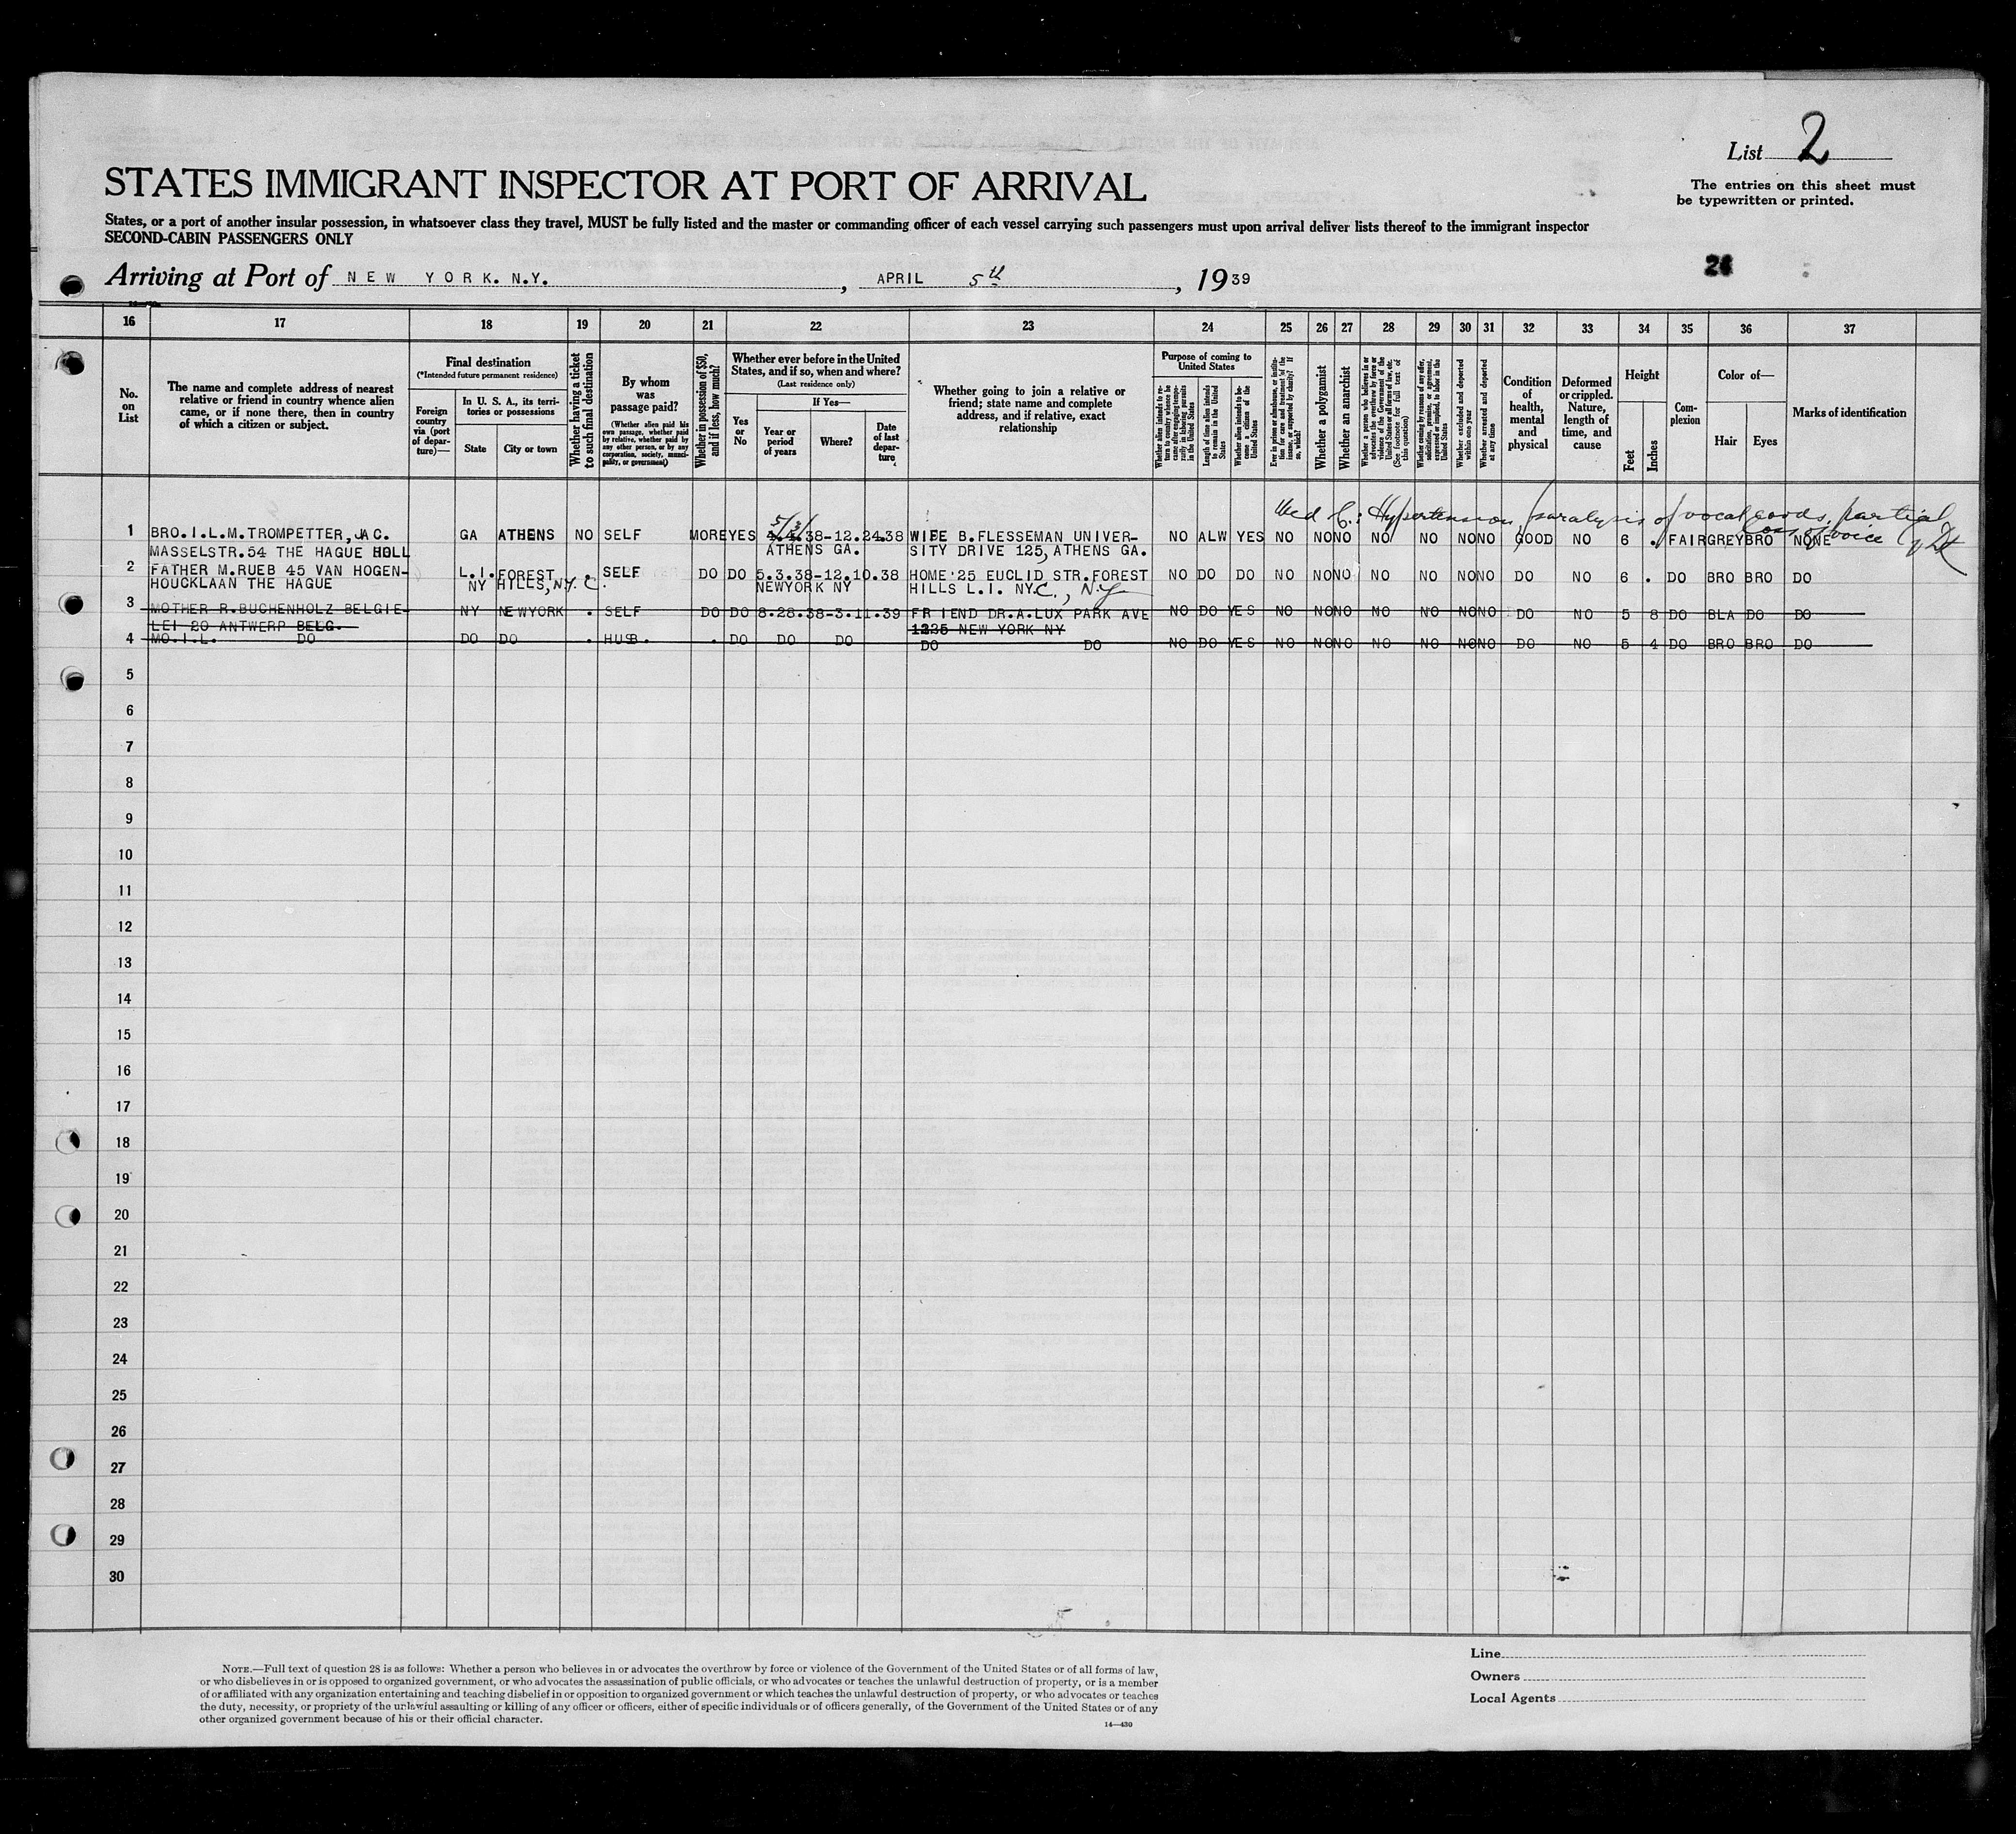 List 2
The entries on this sheet must
be typewritten or printed.
STATES IMMIGRANT INSPECTOR AT PORT OF ARRIVAL
States, or a port of another insular possession, in whatsoever class they travel, MUST be fully listed and the master or commanding officer of each vessel carrying such passengers must upon arrival deliver lists thereof to the immigrant inspector
SECOND-CABIN PASSENGERS ONLY
26
Arriving at Port of NEW YORK. N.Y. , APRIL 5th , 1939
16 17 18 19 20 21 22 23 24 25 26 27 28 29 30 31 32 33 34 35 36 37
No.
on
List
The name and complete address of nearest
relative or friend in country whence alien
came, or if none there, then in country
of which a citizen or subject.
Final destination
(*Intended future permanent residence)
Foreign
country
via (port
of depar-
ture)—
In U. S. A., its terri-
tories or possessions
State
City or town
Whether having a ticket
to such final destination
By whom
was
passage paid?
(Whether alien paid his
own passage, whether paid
by relative, whether paid by
any other person, or by any
corporation, society, munici-
pality, or government)
Whether in possession of $50,
and if less, how much?
Whether ever before in the United
States, and if so, when and where?
(Last residence only)
Yes
or
No
If Yes—
Year or
period
of years
Where?
Date
of last
depar-
ture
Whether going to join a relative or
friend; state name and complete
address, and if relative, exact
relationship
Purpose of coming to
United States
Whether alien intends to re-
turn to country whence he
came after engaging tempo-
rarily in laboring pursuits
in the United States
Length of time alien intends
to remain in the United
States
Whether alien intends to be-
come a citizen of the
United States
Ever in prison or almshouse, or institu-
tion for care and treatment of the
insane, or supported by charity? If
so, which?
Whether a polygamist
Whether an anarchist
Whether a person who believes in or
advocates the overthrow by force or
violence of the Government of the
United States or all forms of law, etc.
(See footnote for full text of
this question)
Whether coming by reasons of any offer,
solicitation, promise, or agreement,
expressed or implied, to labor in the
United States
Whether excluded and deported
within one year
Whether arrested and deported
at any time
Condition
of
health,
mental
and
physical
Deformed
or crippled.
Nature,
length of
time, and
cause
Height
Feet
Inches
Com-
plexion
Color of—
Hair
Eyes
Marks of identification
Med C.: Hypertension, paralysis of vocal cords, partial
loss of voice
5/3/
1 BRO.I.L.M.TROMPETTER,JAC. GA ATHENS NO SELF MORE YES 4.4.38-12.24.38 WIFE B.FLESSEMAN UNIVER- NO ALW YES NO NO NO NO NO NO NO GOOD NO 6 . FAIR GREY BRO NONE
MASSELSTR.54 THE HAGUE HOLL ATHENS GA. SITY DRIVE 125, ATHENS GA.
2 FATHER M.RUEB 45 VAN HOGEN- L.I. FOREST SELF DO DO 5.3.38-12.10.38 HOME 25 EUCLID STR.FOREST NO DO DO NO NO NO NO NO NO NO DO NO 6 . DO BRO BRO DO
HOUCKLAAN THE HAGUE NY HILLS, N.Y.C. NEWYORK NY HILLS L.I. NY.C., N.Y
3 MOTHER R.BUCHENHOLZ BELGIE- NY NEWYORK . SELF DO DO 8.28.38-3.11.39 FRIEND DR.A.LUX PARK AVE NO DO YES NO NO NO NO NO NO NO DO NO 5 8 DO BLA DO DO
LEI 20 ANTWERP BELG. 1225 NEW YORK NY
4 MO.I.L. DO DO DO . HUSB. . DO DO DO DO DO NO DO YES NO NO NO NO NO NO NO DO NO 5 4 DO BRO BRO DO
5
6
7
8
9
10
11
12
13
14
15
16
17
18
19
20
21
22
23
24
25
26
27
28
29
30
NOTE.—Full text of question 28 is as follows: Whether a person who believes in or advocates the overthrow by force or violence of the Government of the United States or of all forms of law,
or who disbelieves in or is opposed to organized government, or who advocates the assassination of public officials, or who advocates or teaches the unlawful destruction of property, or is a member
of or affiliated with any organization entertaining and teaching disbelief in or opposition to organized government or which teaches the unlawful destruction of property, or who advocates or teaches
the duty, necessity, or propriety of the unlawful assaulting or killing of any officer or officers, either of specific individuals or of officers generally, of the Government of the United States or of any
other organized government because of his or their official character.
14—430
Line
Owners
Local Agents